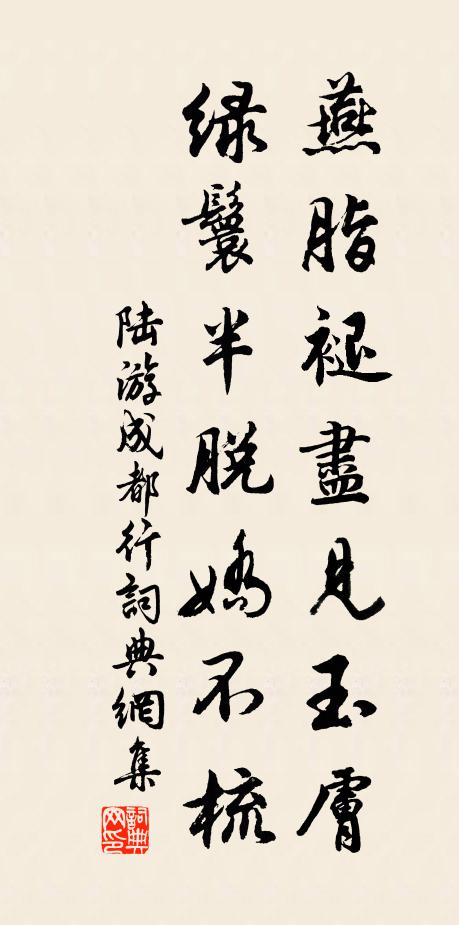 燕脂褪盡見玉膚
綠鬟半脫嬌不梳
陸游成都行詞典網集
詞典網印